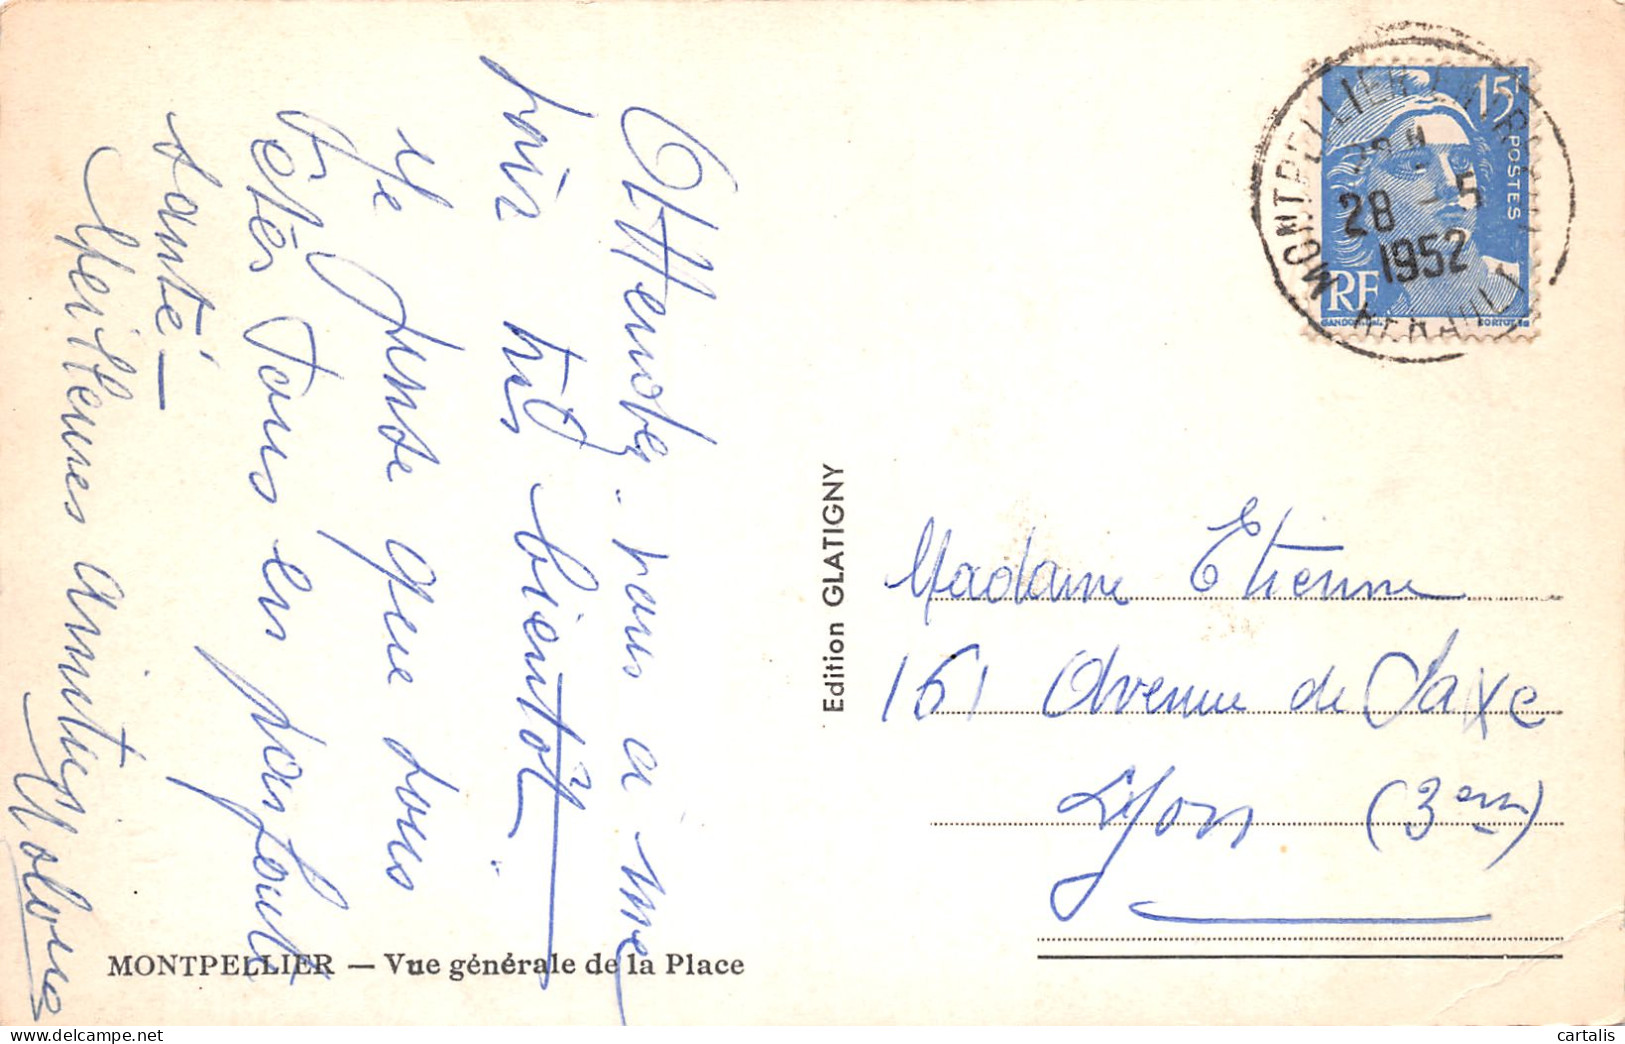 Attendez-vous à me
voir très bientôt..
Je pense que vous
êtes tous en parfaite
santé —
Meilleures amitiés
Edition GLATIGNY
MONTPELLIER — Vue générale de la Place
15F
POSTES
RF
GANDON
CORTOT
MONTPELLIER
28 - 5
1952
HERAULT
Madame Etienne
161 Avenue de Saxe
Lyon (3em)
cartalis